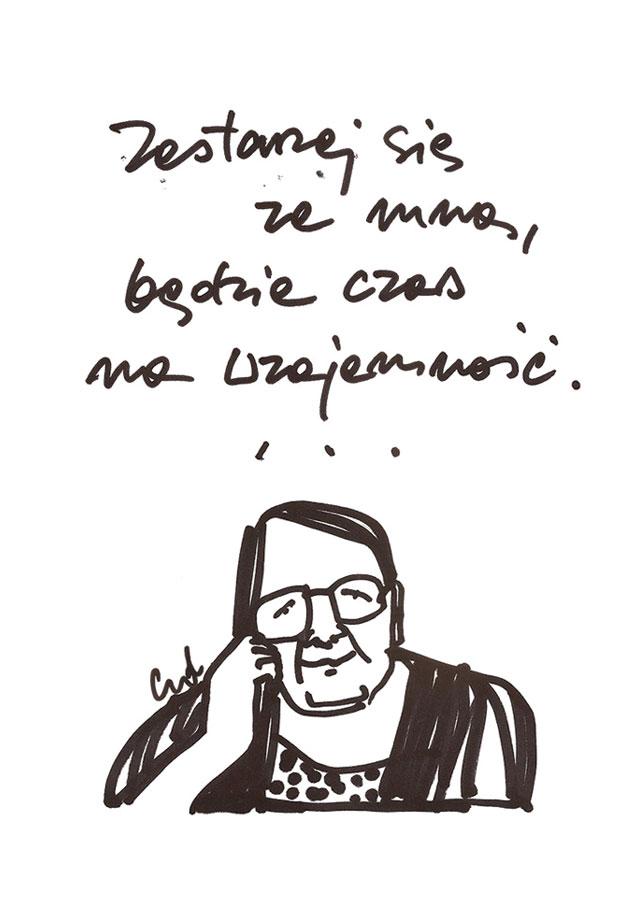 Zestarzej się
ze mną,
będzie czas
na wzajemność.
...